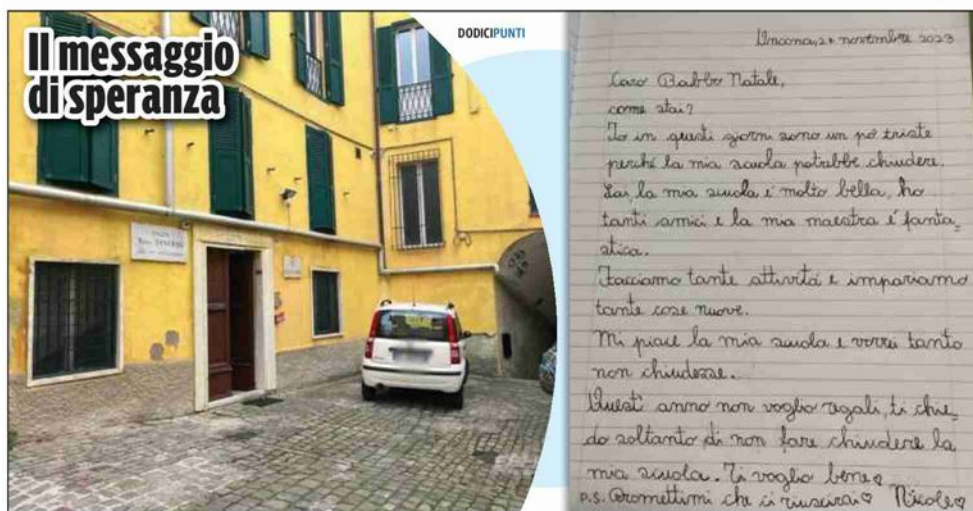 Il messaggio
di speranza
DODICIPUNTI
Ancona, 24 novembre 2023
Caro Babbo Natale,
come stai?
Io in questi giorni sono un pò triste
perché la mia scuola potrebbe chiudere.
Sai, la mia scuola é molto bella, ho
tanti amici e la mia maestra é fanta_
stica.
Facciamo tante attività e impariamo
tante cose nuove.
Mi piace la mia scuola e vorrei tanto
non chiudesse.
Quest' anno non voglio regali, ti chie_
do soltanto di non fare chiudere la
mia scuola. Ti voglio bene♡
P.S. Promettimi che ci riuscirai♡ Nicole♡